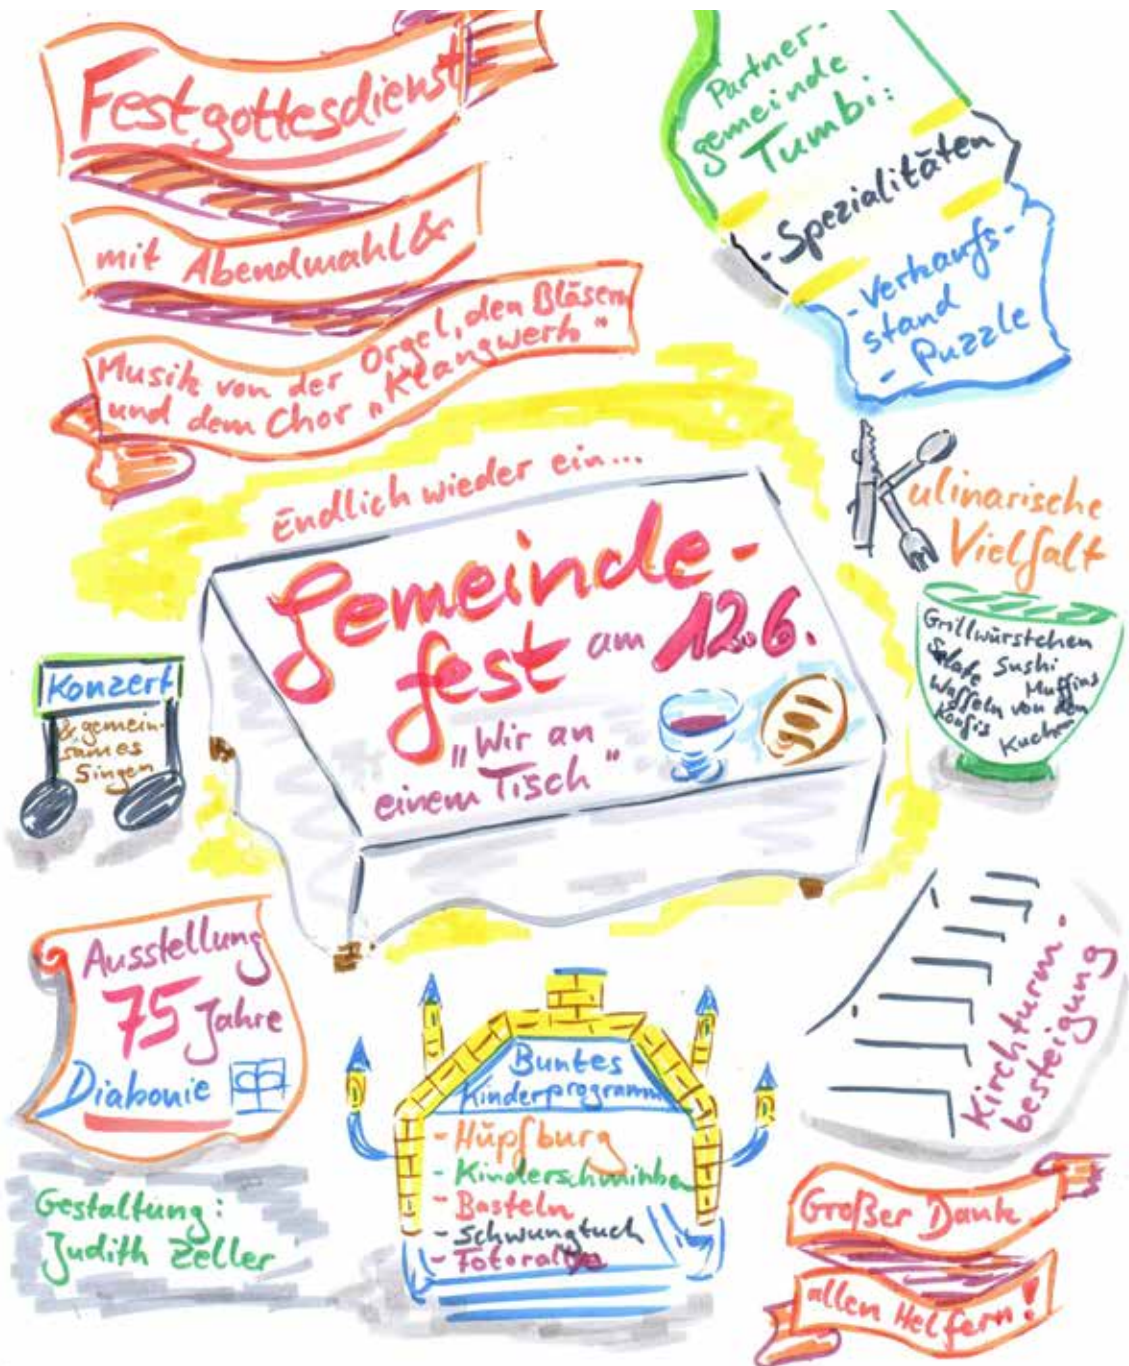 Festgottesdienst
mit Abendmahl &
Musik von der Orgel, den Bläsern
und dem Chor „Klangwerk"
Partner-
gemeinde
Tumbi:
- Spezialitäten
- Verkaufs-
stand
- Puzzle
Endlich wieder ein...
Gemeinde-
fest am 12.6.
„Wir an
einem Tisch"
Kulinarische
Vielfalt
Grillwürstchen
Salate Sushi
Muffins
Waffeln von den
Konfis
Kuchen
Konzert
& gemein-
sames
Singen
Ausstellung
75 Jahre
Diakonie
Buntes
Kinderprogramm
- Hüpfburg
- Kinderschminken
- Basteln
- Schwungtuch
- Fotorallye
Kirchturm-
besteigung
Gestaltung:
Judith Zeller
Großer Dank
allen Helfern!